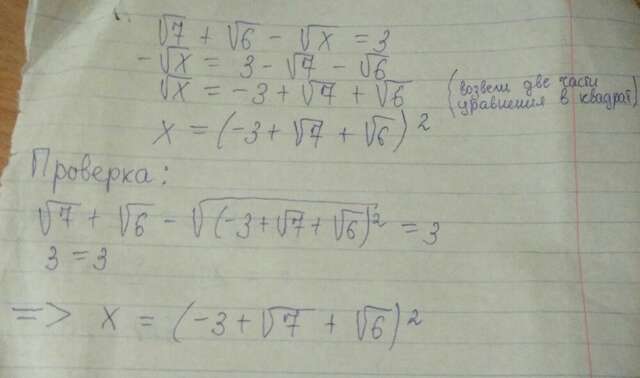 √7 + √6 - √x = 3
-√x = 3 - √7 - √6
√x = -3 + √7 + √6 (возвели две части уравнения в квадрат)
x = (-3 + √7 + √6)²
Проверка:
√7 + √6 - √(-3 + √7 + √6)² = 3
3 = 3
=> x = (-3 + √7 + √6)²